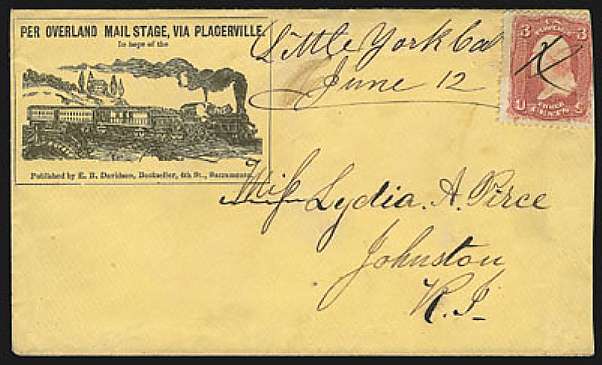 PER OVERLAND MAIL STAGE, VIA PLACERVILLE.
In hope of the
Published by E. B. Davidson, Bookseller, 4th St., Sacramento.
Little York Cal
June 12
3 U.S. POSTAGE 3
U THREE CENTS S
Miss Lydia. A. Pirce
Johnston
R. I.